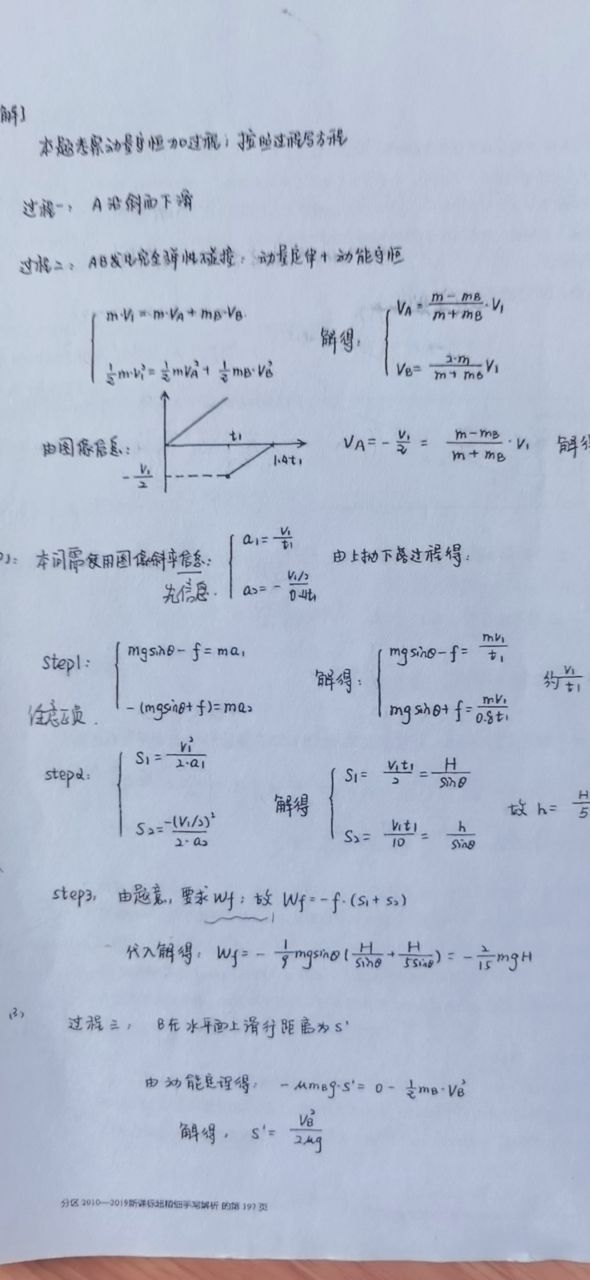 解]
本题考察动量守恒加过程；按照过程写方程
过程一，A沿斜面下滑
过程二：AB发生完全弹性碰撞：动量定律+动能守恒
{ m·V₁ = m·V_A + m_B·V_B.
½m·V₁² = ½mV_A² + ½m_B·V_B²
解得: { V_A = (m-m_B)/(m+m_B)·V₁
V_B = 2·m/(m+m_B) V₁
由图像信息:
t₁
1.4t₁
-V₁/2
V_A = -V₁/2 = (m-m_B)/(m+m_B)·V₁ 解得
): 本问需使用图像斜率信息: { a₁ = V₁/t₁
a₂ = -(V₁/2)/(0.4t₁)
由上抛下落过程得:
step1: { mgsinθ - f = ma₁
-(mgsinθ + f) = ma₂
解得: { mgsinθ - f = mV₁/t₁
mgsinθ + f = mV₁/0.8t₁
约 V₁/t₁
注意正负.
step2: { S₁ = V₁²/(2·a₁)
S₂ = -(V₁/2)²/(2·a₂)
解得 { S₁ = V₁t₁/2 = H/sinθ
S₂ = V₁t₁/10 = h/sinθ
故 h = H/5
step3, 由题意, 要求Wf; 故 Wf = -f·(S₁+S₂)
代入解得: Wf = -1/9 mgsinθ(H/sinθ + H/5sinθ) = -2/15 mgH
(3)
过程三, B在水平面上滑行距离为s'
由动能定理得: -μm_Bg·s' = 0 - ½m_B·V_B²
解得, s' = V_B²/2μg
分区 2010—2019新课标超精细手写解析 的第 197 页